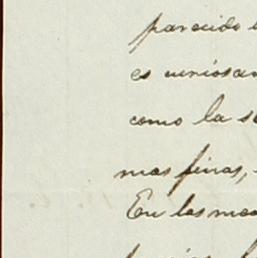 parecido
es curiosa
como la s
mas finas,
En las ma